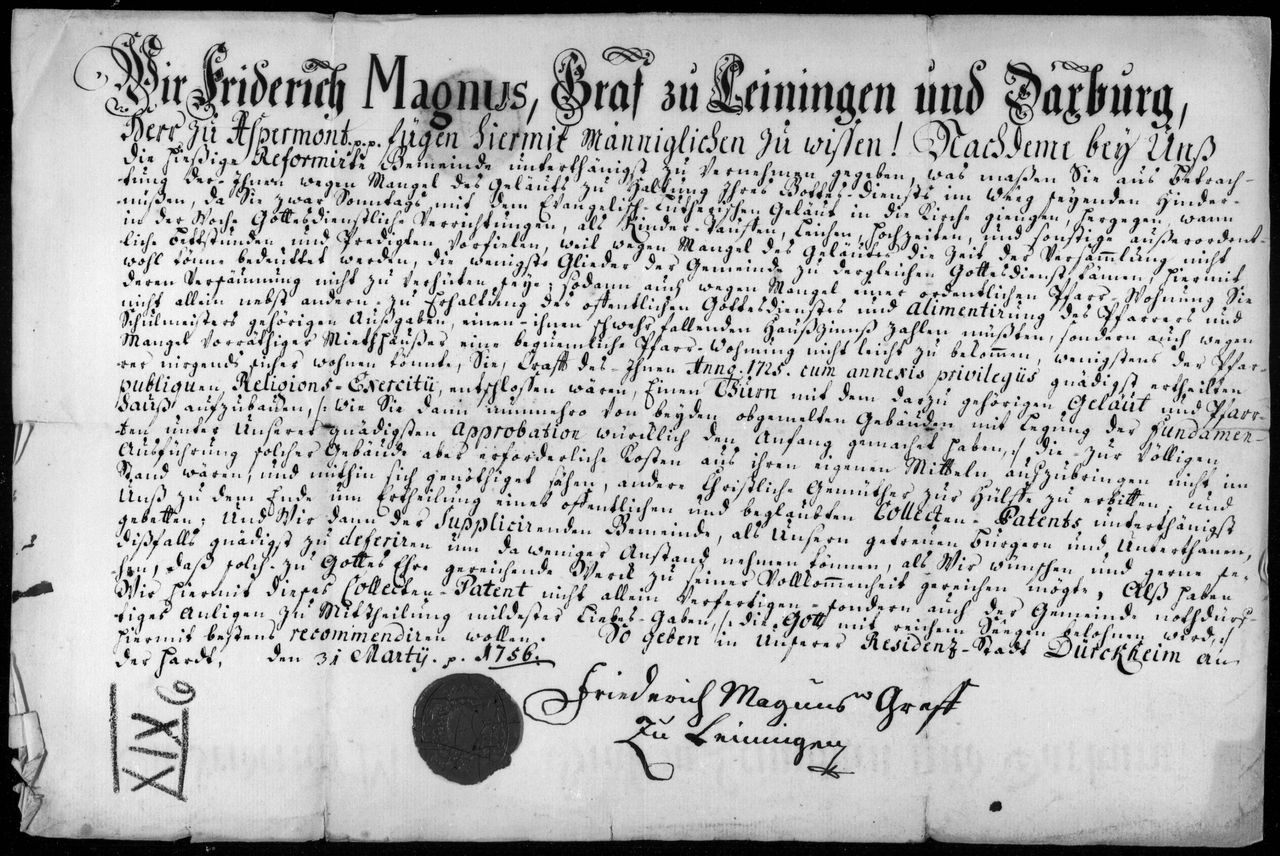 Wir Friderich Magnus, Graf zu Leiningen und Daxburg,
Herr zu Aspermont p.p. fügen hiermit Männiglichen zu wissen! Nachdeme bey Unß
die hießige Reformirte Gemeinde unterthänigst zu vernehmen gegeben, was maßen Sie aus Betrach-
tung der Ihnen wegen Mangel des Geläuts zu Haltung Ihres Gottes-diensts im Weeg seyenden Hinder-
nüßen, da Sie zwar Sonntags mit dem Evangelisch-Lutherischen Geläut in die Kirche giengen, hergegen, wann
in der Woche Gottesdienstliche Verrichtungen, als Kinder-Tauffen, Leichen, Hochzeiten, und sonstige außerordent-
liche Bettstunden und Predigten vorfielen, weil wegen Mangel des Geläutes die Zeit der Versammlung nicht
wohl könne bedeuttet werden, die wenigste Glieder der Gemeinde zu dergleichen Gottesdienst kämen, hiermit
deren Versäumung nicht zu verhüten seye; sodann auch wegen Mangel einer ordentlichen Pfarr-Wohnung Sie
nicht allein nebst andern zu Erhaltung des öffentlichen Gottesdienstes und alimentirung des Pfarrers und
Schulmeisters gehörigen Außgaben, einen ihnen schwehr fallenden Haußzinnß zahlen müßten, sondern auch wegen
Mangel vorräthiger Miethhäußer eine bequemliche Pfarr-Wohnung nicht leicht zu bekommen, wenigstens der Pfar-
rer nirgends sicher wohnen könnte, Sie, Crafft des Ihnen Anno 1725. cum annexis privilegijs gnädigst ertheilten
publiquen Religions-Exercitij, entschlossen wären, Einen Thurn mit dem darzu gehörigen Geläut und Pfarr-
Hauß aufzubauen, /: wie Sie dann nunmehro von beyden obgemelten Gebäuden mit Legung der Fundamen-
ten unter Unserer gnädigsten approbation würcklich den Anfang gemacht haben, :/ die zur völligen
Ausführung solcher Gebäude aber erforderliche Kosten aus ihren eigenen Mitteln aufzubringen nicht im
Stand wären, und mithin sich genöthiget sähen, andere Christliche Gemüther zur Hülffe zu erbitten, und
Unß zu dem Ende um Ertheilung eines öffentlichen und beglaubten Collecten-Patents unterthänigst
gebetten; Und Wir dann der Supplicirenden Gemeinde, als Unsern getreuen Bürgern und Unterthanen,
dißfalls gnädigst zu deferiren um da weniger Anstand nehmen können, als Wir wünschen und gerne se-
hen, daß solch zu Gottes Ehre gereichende Werck zu seiner Vollkommenheit gereichen möge, Alß haben
Wir hiermit dieses Collecten-Patent nicht allein verfertigen, sondern auch der Gemeinde nothdürf-
tiges Anligen zu Mittheilung mildester Liebes-Gaben, /: die Gott mit reichem Seegen belohnen wird, :/
hiermit bestens recommendiren wollen. So geben in Unserer Residenz-Stadt Dürckheim an
der Hardt, den 31 Martij. p. 1756.
Friederich Magnus Graff
Zu Leiningen
XIX 6